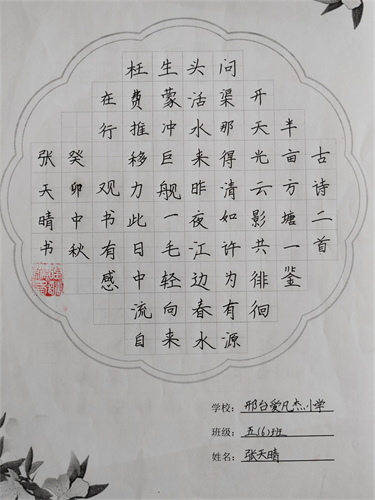 古诗二首
半亩方塘一鉴
开天光云影共徘徊
问渠那得清如许为有源
头活水来昨夜江边春水
生蒙冲巨舰一毛轻向来
枉费推移力此日中流自
在行 观书有感
癸卯中秋
张天晴书
学校：邢台爱凡杰小学
班级：五(6)班
姓名：张天晴